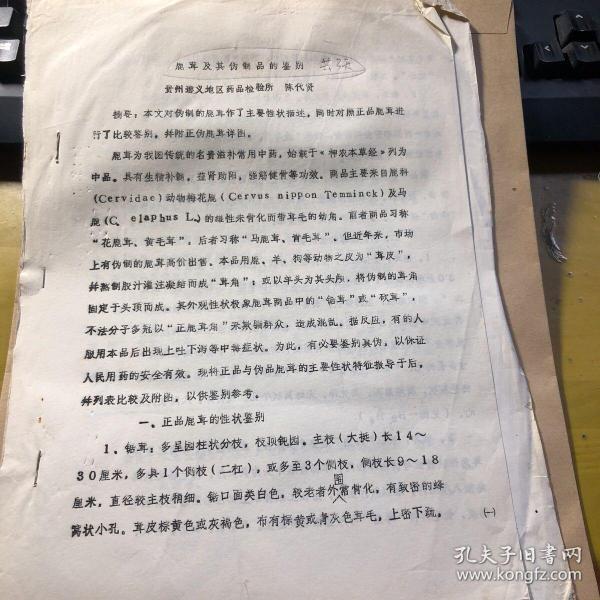 鹿茸及其伪制品的鉴别 共3页
贵州遵义地区药品检验所 陈代贤
摘要：本文对伪制的鹿茸作了主要性状描述，同时对照正品鹿茸进
行了比较鉴别，并附正伪鹿茸详图。
鹿茸为我国传统的名贵滋补常用中药，始载于《神农本草经》列为
中品。具有生精补髓，益肾助阳，强筋健骨等功效。商品主要来自鹿科
(Cervidae)动物梅花鹿(Cervus nippon Temninck)及马
鹿(C. elaphus L.)的雄性未骨化而带茸毛的幼角。前者商品习称
“花鹿茸、黄毛茸”，后者习称“马鹿茸、青毛茸”。但近年来，市场
上有伪制的鹿茸高价出售。本品用鹿、羊、狗等动物之皮为“茸皮”，
并熬制胶汁灌注凝结而成“茸角”；或以羊头为其头颅，将伪制的茸角
固定于头顶而成。其外观性状极象鹿茸商品中的“锯茸”或“砍茸”，
不法分子多冠以“正鹿茸角”来欺骗群众，造成混乱。据反应，有的人
服用本品后出现上吐下泻等中毒症状。为此，有必要鉴别真伪，以保证
人民用药的安全有效。现将正品与伪品鹿茸的主要性状特征指导于后，
并列表比较及附图，以供鉴别参考。
一、正品鹿茸的性状鉴别
1、锯茸：多呈园柱状分枝，枝顶钝园。主枝(大挺)长14～
30厘米，多具1个侧枝(二杠)，或多至3个侧枝，侧枝长9～18
厘米，直径较主枝稍细。锯口面类白色，较老者外围常骨化，有致密的蜂
窝状小孔。茸皮棕黄色或灰褐色，布有棕黄或青灰色茸毛，上密下疏，
(一)
孔夫子旧书网
www.kongfz.com